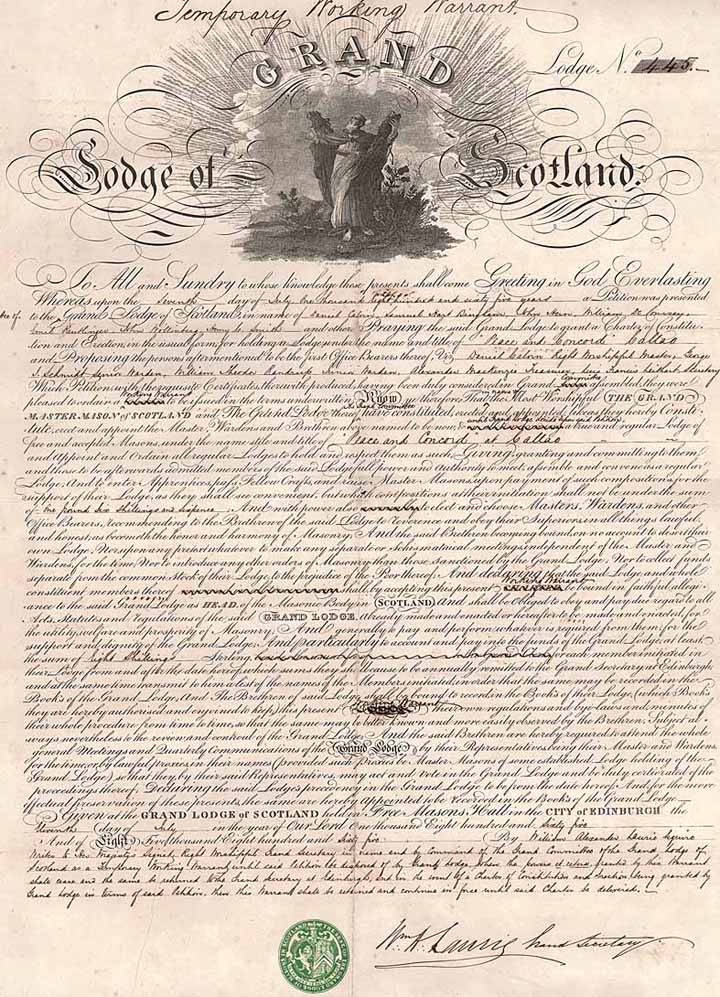 Temporary Working Warrant.
Lodge No. 445.
GRAND
Lodge of Scotland.
To All and Sundry to whose knowledge these presents shall come Greeting in God Everlasting
Whereas upon the Seventh day of July One Thousand Eight hundred and sixty five years a Petition was presented
to the Grand Lodge of Scotland in name of Daniel Colvin, Samuel Hays John William De Courcey
John Wittenberg, Henry L. Smith and others Praying the said Grand Lodge to grant a Charter of Constitu-
tion and Erection, in the usual form, for holding a Lodge under the name and title of "Peace and Concord" Callao
and Proposing the persons aftermentioned to be the first Office Bearers thereof. Viz. Daniel Colvin Right Worshipful Master, George
J. Schmidt Senior Warden, William Rhode Junior Warden, Alexander Mackenzie Treasurer, Francis Secretary
Which Petition, with the requisite Certificates therewith produced, having been duly considered in Grand Committee assembled, they were
pleased to order a Working Warrant to be issued in the terms underwritten. Know ye therefore That the Most Worshipful THE GRAND
MASTER MASON of SCOTLAND and The Grand Committee have Constituted, erected and appointed, Likeas they hereby Consti-
tute, erect and appoint the Master, Wardens and Brethren above named to be now a true and regular Lodge of
free and accepted Masons, under the name stile and title of "Peace and Concord" at Callao
and Appoint and Ordain all regular Lodges to hold and respect them as such, Giving, granting and committing to them
and those to be afterwards admitted members of the said Lodge full power and Authority to meet, assemble and convene as a regular
Lodge, And to enter Apprentices, pass Fellow Crafts, and raise Master Masons, upon payment of such compositions for the
support of their Lodge, as they shall see convenient, but which compositions at their initiation shall not be under the sum
of One pound Six Shillings and sixpence. And with power also to elect and choose Masters, Wardens, and other
Office Bearers, recommending to the Brethren of the said Lodge to Reverence and obey their Superiors in all things lawful
and honest, as becometh the honor and harmony of Masonry. And the said Brethren becoming bound, on no account to desert their
own Lodge, Nor upon any pretext whatever to make any separate or Schismatical meetings independent of the Master and
Wardens, for the time, Nor to introduce any other orders of Masonry than those sanctioned by the Grand Lodge, Nor to collect funds
separate from the common Stock of their Lodge, to the prejudice of the Poor thereof, And declaring that the said Lodge and whole
constituent members thereof shall by accepting this present Working Warrant be bound in faithful allegi-
ance to the said Grand Lodge as HEAD, of the Masonic Body in SCOTLAND and shall be obliged to obey and pay due regard to all
Acts, Statutes and regulations of the said GRAND LODGE, already made and enacted or hereafter to be made and enacted, for
the utility, welfare and prosperity of Masonry, And generally to pay and perform whatever is required from them for the
support and dignity of the Grand Lodge, And particularly to account for and pay into the funds of the Grand Lodge, at least
the sum of Eight Shillings Sterling for each member initiated in
their Lodge from and after the date hereof, to be annually remitted to the Grand Secretary, at Edinburgh
and at the same time transmit to him a list of the names of the Members initiated in order that the same may be recorded in the
Books of the Grand Lodge. And The Brethren of said Lodge shall be bound to record in the Books of their Lodge (which Books
they are hereby authorised and enjoined to keep) this present their own regulations and bye-laws and minutes of
their whole procedure from time to time, so that the same may be better known and more easily observed by the Brethren, Subject al-
ways nevertheless to the review and controul of the Grand Lodge. And the said Brethren are hereby required to attend the whole
general Meetings and Quarterly Communications of the Grand Lodge by their Representatives, being their Master and Wardens
for the time, or by lawful proxies in their names (provided said Proxies be Master Masons of some established Lodge holding of the
Grand Lodge) so that they, by their said Representatives, may act and vote in the Grand Lodge and be duly certiorated of the
proceedings thereof, Declaring the said Lodge's precedency in the Grand Lodge to be from the date hereof. And for the more
effectual preservation of these presents, the same are hereby appointed to be recorded in the Books of the Grand Lodge
Given at the GRAND LODGE of SCOTLAND held in Free Masons Hall in the CITY of EDINBURGH the
Eleventh day of July in the year of Our Lord One thousand Eight hundred and Sixty five
And of Light Five thousand Eight hundred and Sixty five By William Alexander Laurie Esquire
Writer to Her Majesty's Signet, Right Worshipful Grand Secretary in name and by Command of the Grand Committee of the Grand Lodge of
Scotland as a Temporary Working Warrant until said Petition be disposed of by Grand Lodge, when the powers granted by this Warrant
shall cease and the same be returned to the Grand Secretary at Edinburgh, but in the event of a Charter of Constitution and Erection being granted by
Grand Lodge in terms of said Petition, then this Warrant shall be returned and continue in force until said Charter be delivered.
Wm. A. Laurie Grand Secretary